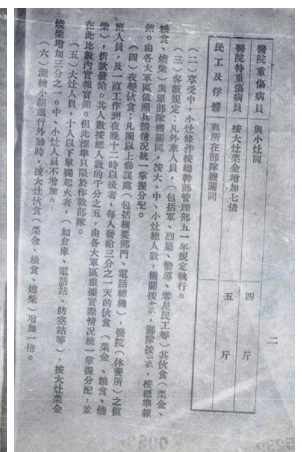 二
醫院重傷病員 與小灶同 四斤
醫院特重傷病員 按大灶菜金增加七倍 五斤
民工及俘體 與所在部隊機關同
(二)享受中、小灶條件按總幹部管理部五一年規定執行。
(三)客飯規定:凡外來人員,(包括軍、烈屬、嚮導、零星民工等)其伙食(菜金、
糧食、燒柴)與原部隊機關同,按大、中、小灶總人數,機關按
銷。由各大軍區依照具體情況統一掌握分配。
(四)夜餐伙食:凡團以上參謀處(包括機要部門、電話總機),醫院(休養所)之值
班人員,及一直工作到夜晚十二時以後者,每人發給三分之一天的伙食(菜金、糧食、燒
柴),折款發給。其人數按總人數的千分之五,由各大軍區根據實際情況統一掌握分配,並
在此比數內實報實銷。但此標準只限於作戰部隊。
(五)大灶人員,十人以下單獨起伙者,(如倉庫、電話站、防空站等),按大灶菜金
燒柴增加三分之一。中、小灶人員不增加。
(六)測繪小組進行外勤時,按大灶伙食(菜金、糧食、燒柴)增加一倍。